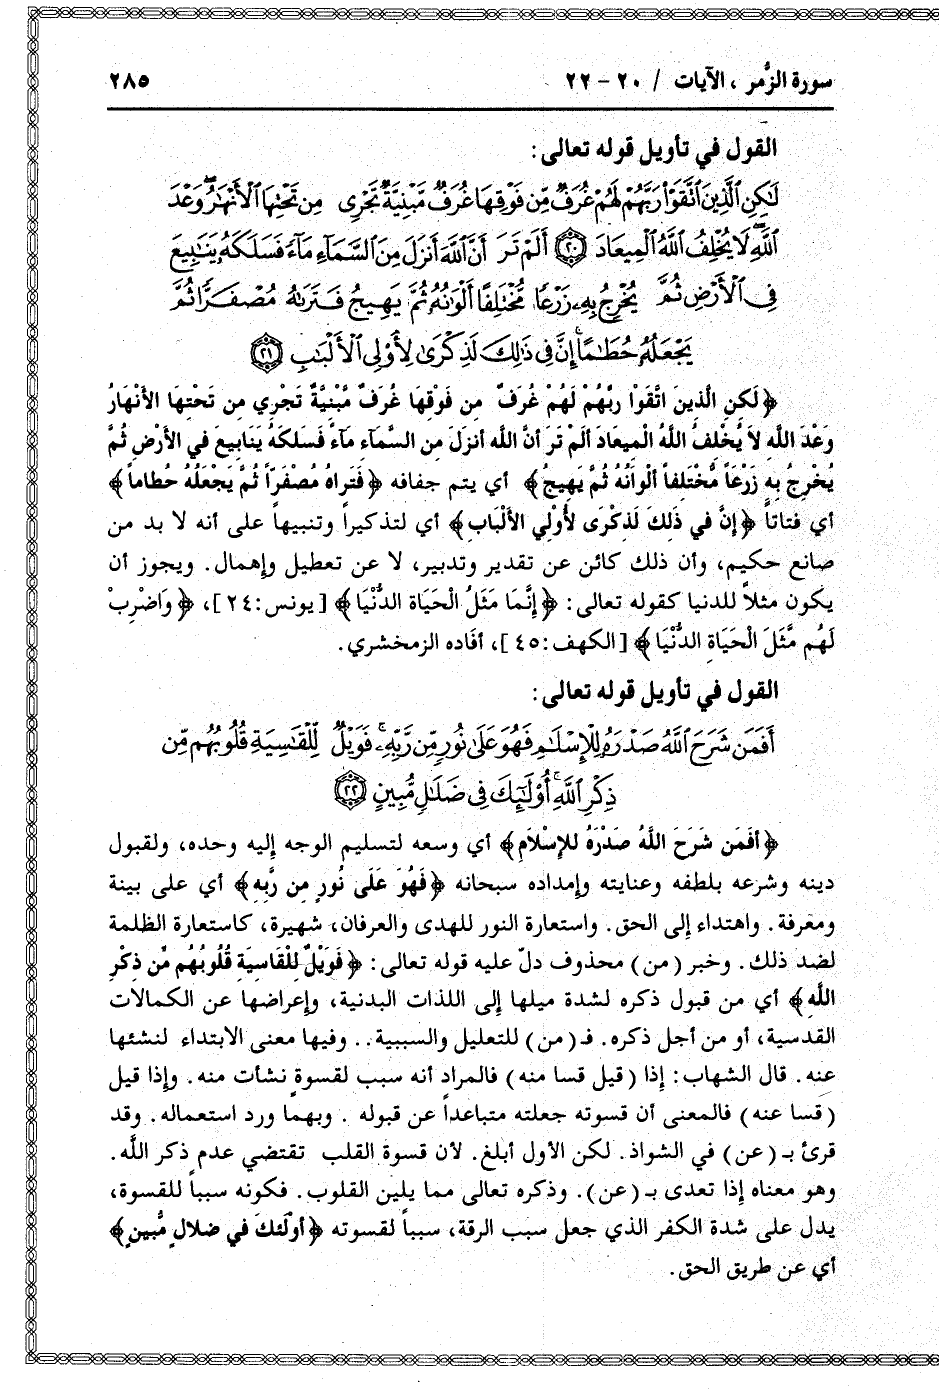 سورة الزُّمر ، الآيات / ٢٠ - ٢٢ ٢٨٥
القول في تأويل قوله تعالى:
لَٰكِنِ ٱلَّذِينَ ٱتَّقَوْا۟ رَبَّهُمْ لَهُمْ غُرَفٌ مِّن فَوْقِهَا غُرَفٌ مَّبْنِيَّةٌ تَجْرِى مِن تَحْتِهَا ٱلْأَنْهَٰرُ ۖ وَعْدَ
ٱللَّهِ ۖ لَا يُخْلِفُ ٱللَّهُ ٱلْمِيعَادَ ٢٠ أَلَمْ تَرَ أَنَّ ٱللَّهَ أَنزَلَ مِنَ ٱلسَّمَآءِ مَآءً فَسَلَكَهُۥ يَنَٰبِيعَ
فِى ٱلْأَرْضِ ثُمَّ يُخْرِجُ بِهِۦ زَرْعًا مُّخْتَلِفًا أَلْوَٰنُهُۥ ثُمَّ يَهِيجُ فَتَرَىٰهُ مُصْفَرًّا ثُمَّ
يَجْعَلُهُۥ حُطَٰمًا ۚ إِنَّ فِى ذَٰلِكَ لَذِكْرَىٰ لِأُو۟لِى ٱلْأَلْبَٰبِ ٢١
﴿لَكِنِ الَّذينَ اتَّقَوْا ربَّهُمْ لَهُمْ غُرَفٌ من فَوْقِهَا غُرَفٌ مَّبْنِيَّةٌ تَجْرِي من تَحتِهَا الأنْهَارُ
وَعْدَ اللَّهِ لاَ يُخْلفُ اللَّهُ الْميعَادَ ألَمْ تَرَ أنَّ اللَّه أنزَلَ من السَّمآءِ مآءً فَسَلكَهُ يَنَابيعَ في الأرْضِ ثُمَّ
يُخْرِجُ به زَرْعَاً مُّخْتَلفاً ألْوَانُهُ ثُمَّ يَهيجُ﴾ أي يتم جفافه ﴿فَتَراهُ مُصْفَراً ثُمَّ يَجْعَلُهُ حُطاماً﴾
أي فتاتاً ﴿إنَّ في ذَلكَ لَذكْرَى لأُوْلي الألْبَاب﴾ أي لتذكيراً وتنبيهاً على أنه لا بد من
صانع حكيم، وأن ذلك كائن عن تقدير وتدبير، لا عن تعطيل وإهمال. ويجوز أن
يكون مثلاً للدنيا كقوله تعالى: ﴿إِنَّمَا مَثَلُ الْحَيَاة الدُّنْيَا﴾ [يونس:٢٤]، ﴿وَاضْرِبْ
لَهُم مَّثَلَ الْحَيَاةِ الدُّنْيَا﴾ [الكهف:٤٥]، أفاده الزمخشري.
القول في تأويل قوله تعالى:
أَفَمَن شَرَحَ ٱللَّهُ صَدْرَهُۥ لِلْإِسْلَٰمِ فَهُوَ عَلَىٰ نُورٍ مِّن رَّبِّهِۦ ۚ فَوَيْلٌ لِّلْقَٰسِيَةِ قُلُوبُهُم مِّن
ذِكْرِ ٱللَّهِ ۚ أُو۟لَٰٓئِكَ فِى ضَلَٰلٍ مُّبِينٍ ٢٢
﴿أفَمَن شَرَحَ اللَّهُ صَدْرَهُ للإسْلاَمِ﴾ أي وسعه لتسليم الوجه إليه وحده، ولقبول
دينه وشرعه بلطفه وعنايته وإمداده سبحانه ﴿فَهُوَ عَلَى نُورٍ من رَّبه﴾ أي على بينة
ومعرفة. واهتداء إلى الحق. واستعارة النور للهدى والعرفان، شهيرة، كاستعارة الظلمة
لضد ذلك. وخبر (من) محذوف دلّ عليه قوله تعالى: ﴿فَوَيْلٌ للْقَاسيَة قُلُوبُهُم مّن ذكْرِ
اللَّهِ﴾ أي من قبول ذكره لشدة ميلها إلى اللذات البدنية، وإعراضها عن الكمالات
القدسية، أو من أجل ذكره. فـ(من) للتعليل والسببية.. وفيها معنى الابتداء لنشئها
عنه. قال الشهاب: إذا (قيل قسا منه) فالمراد أنه سبب لقسوةٍ نشأت منه. وإذا قيل
(قسا عنه) فالمعنى أن قسوته جعلته متباعداً عن قبوله . وبهما ورد استعماله. وقد
قرئ بـ (عن) في الشواذ. لكن الأول أبلغ. لأن قسوة القلب تقتضي عدم ذكر الله.
وهو معناه إذا تعدى بـ (عن). وذكره تعالى مما يلين القلوب. فكونه سبباً للقسوة،
يدل على شدة الكفر الذي جعل سبب الرقة، سبباً لقسوته ﴿أولَئكَ في ضلالٍ مُّبينٍ﴾
أي عن طريق الحق.